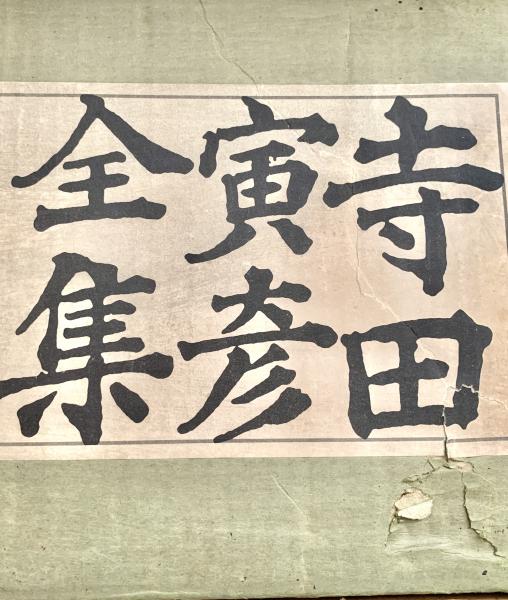 寺田
寅彦
全集